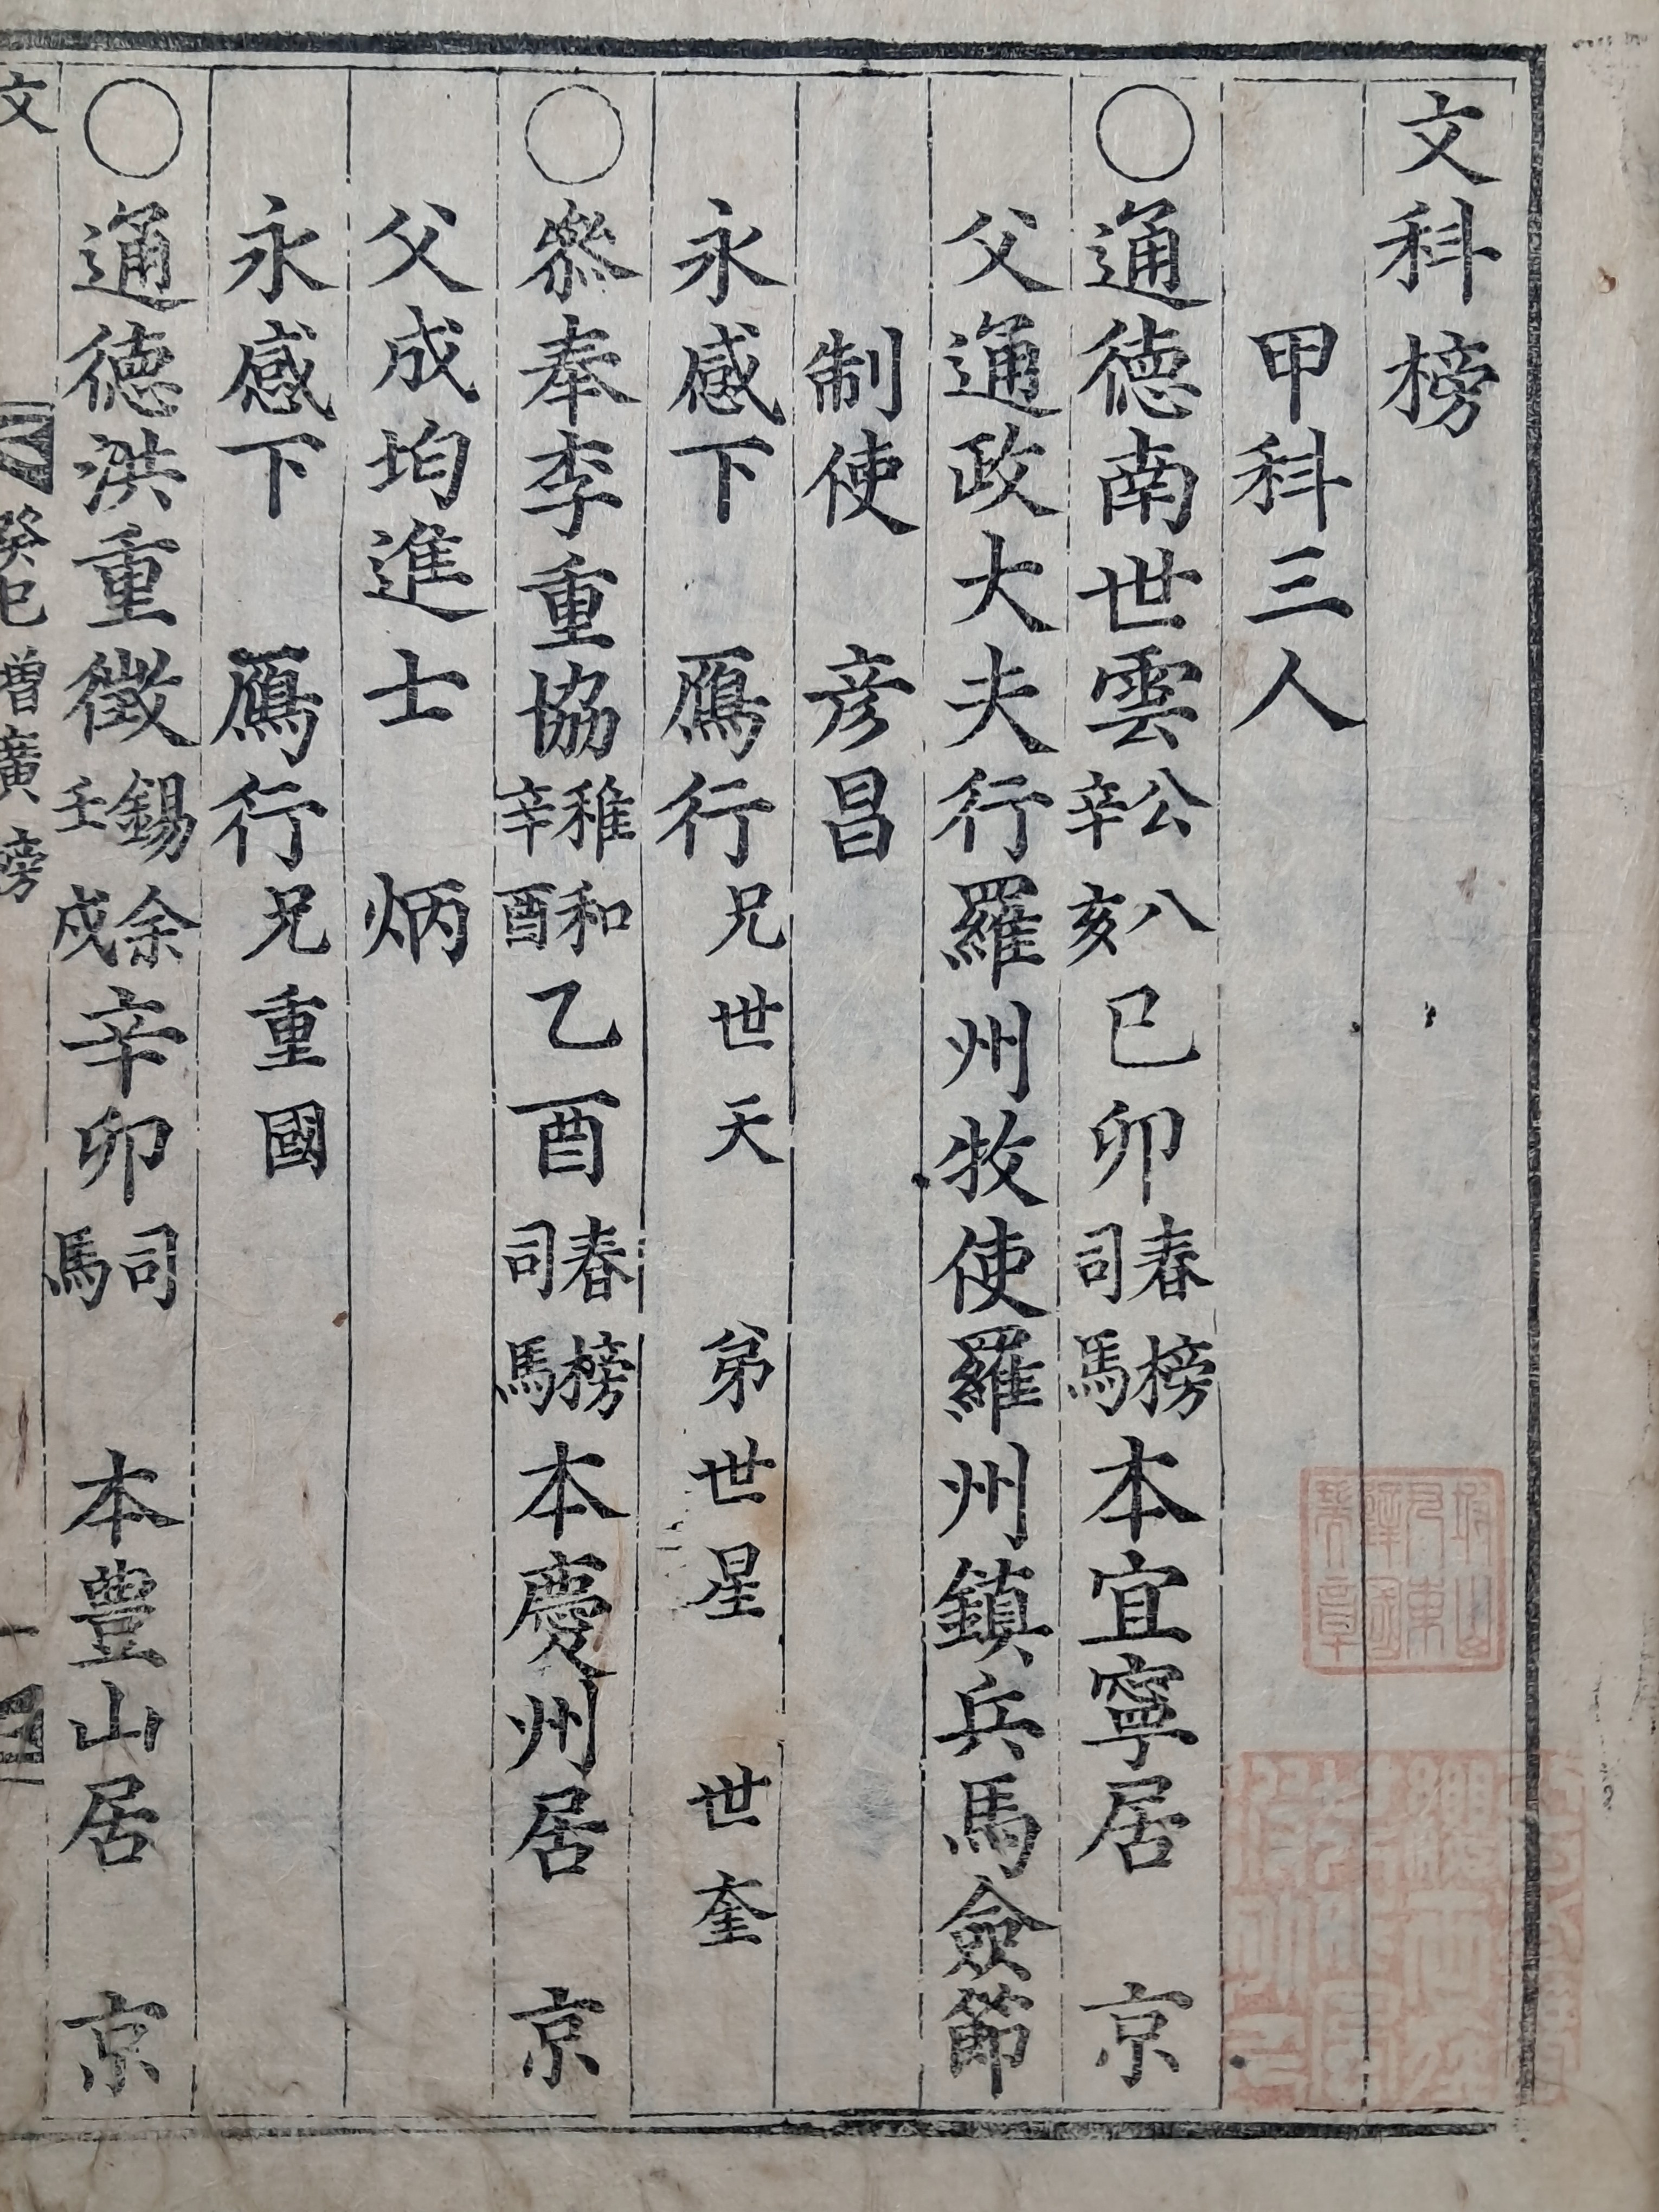 文科榜
甲科三人
○通德南世雲公八辛亥己卯春榜司馬本宜寧居京
父通政大夫行羅州牧使羅州鎭兵馬僉節
制使彦昌
永感下鴈行兄世天弟世星世奎
○叅奉李重協稚和辛酉乙酉春榜司馬本慶州居京
父成均進士炳
永感下鴈行兄重國
○通德洪重徵錫余壬戌辛卯司馬本豊山居京
文 癸巳增廣榜 一